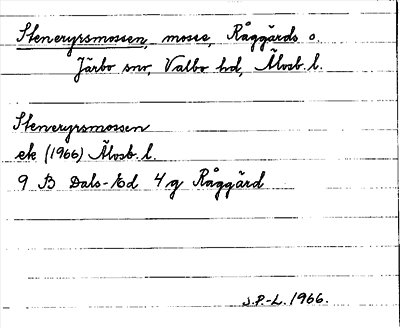 Steneryrsmossen, mosse, Råggärds o.
Järbo snr, Valbo hd, Älvsb. l.
Steneryrsmossen
ek (1966) Älvsb. l.
9 B Dals-Ed 4g Råggärd
J.P.-L. 1966.